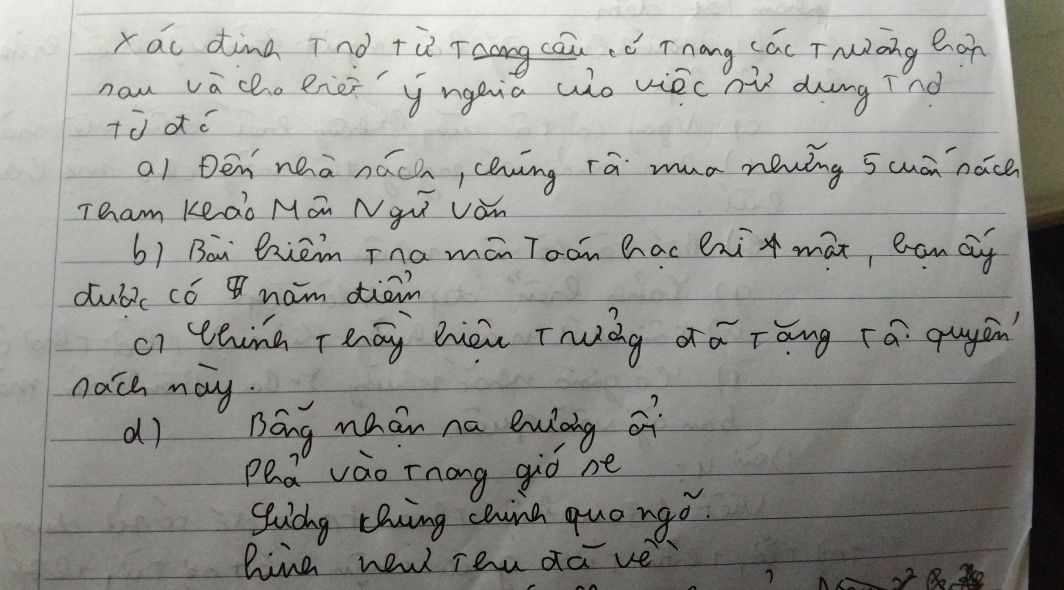 Xác định trợ từ trong câu có trong các trường hợp
sau và cho biết ý nghĩa của việc sử dụng trợ
từ đó
a) Đến nhà sách, chúng tôi mua những 5 cuốn sách
Tham khảo Môn Ngữ văn
b) Bài kiểm tra môn Toán học kì mật, bạn ấy
được có năm điểm
c) Chính thầy hiệu trưởng đã tặng tôi quyển
sách này.
d) Bỗng nhận ra hương ổi
Phả vào trong gió se
Sương chùng chình qua ngõ.
Hình như thu đã về